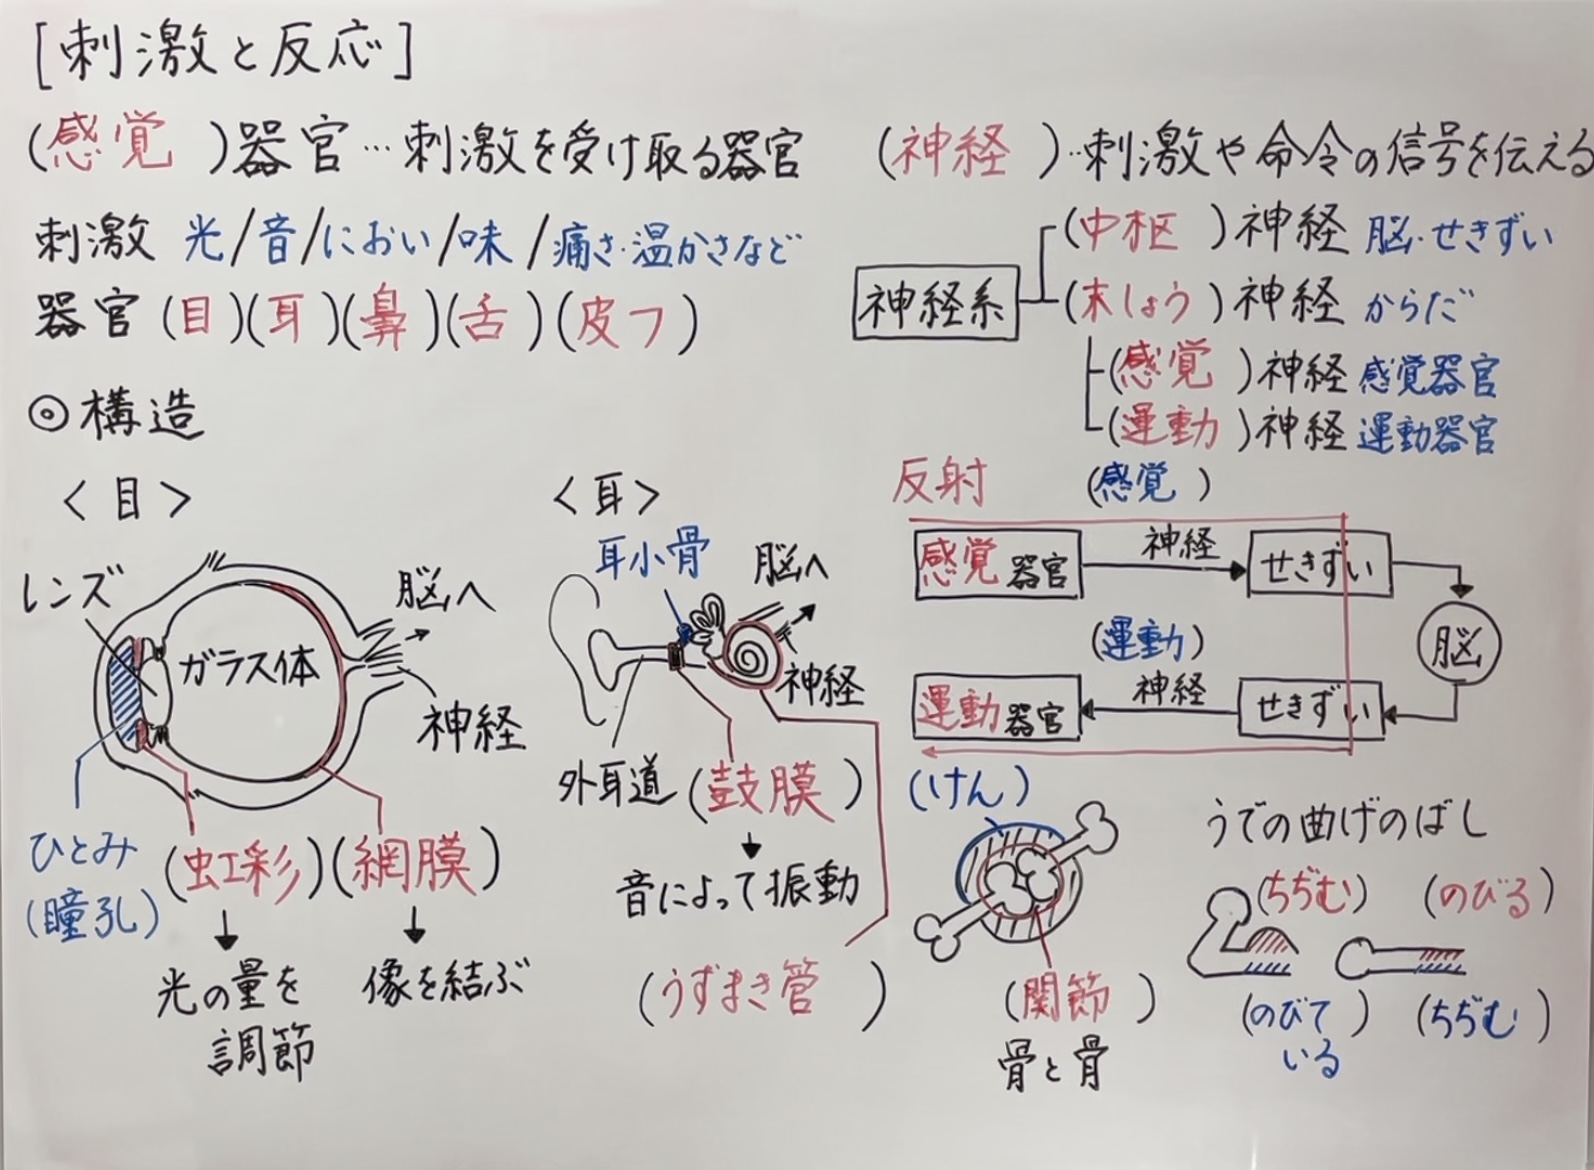 [刺激と反応]
(感覚)器官…刺激を受け取る器官
刺激 光/音/におい/味/痛さ・温かさなど
器官(目)(耳)(鼻)(舌)(皮フ)
◎構造
<目>
レンズ
ガラス体
脳へ
神経
ひとみ
(瞳孔)
(虹彩)
↓
光の量を
調節
(網膜)
↓
像を結ぶ
<耳>
耳小骨
脳へ
神経
外耳道
(鼓膜)
↓
音によって振動
(うずまき管)
(神経)…刺激や命令の信号を伝える
神経系
(中枢)神経 脳・せきずい
(末しょう)神経 からだ
(感覚)神経 感覚器官
(運動)神経 運動器官
反射
(感覚)
感覚器官
神経
せきずい
脳
(運動)
運動器官
神経
せきずい
(けん)
(関節)
骨と骨
うでの曲げのばし
(ちぢむ) (のびる)
(のびて
いる)
(ちぢむ)